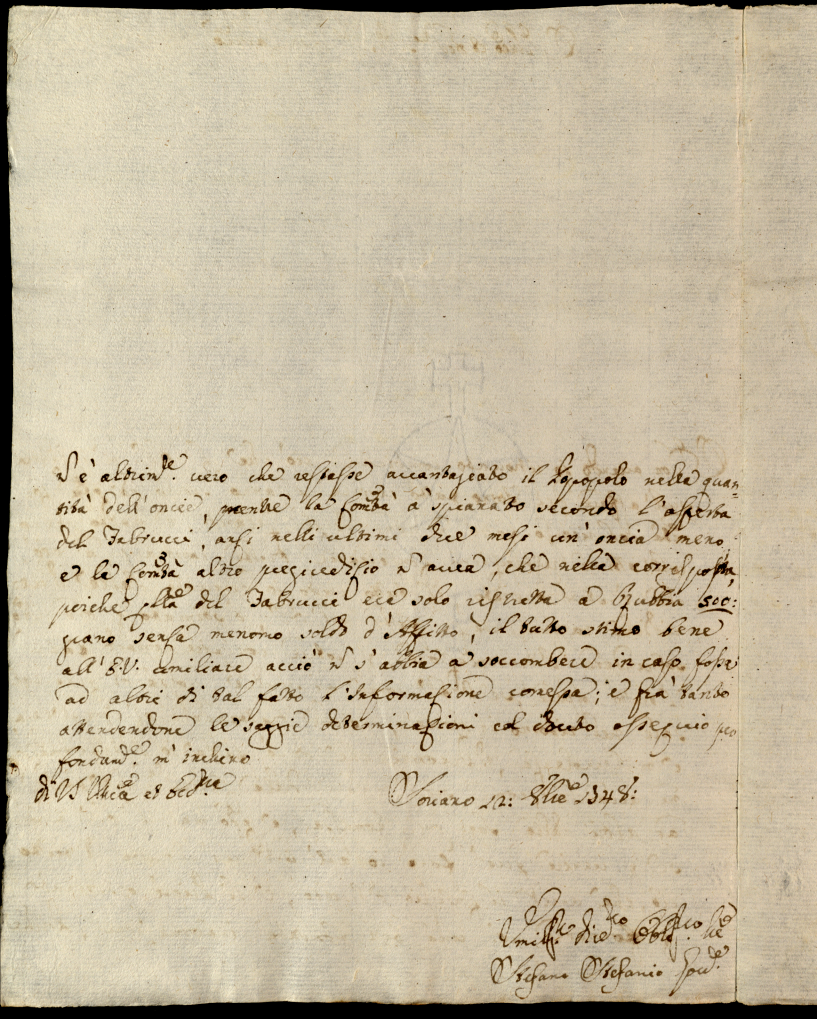 N è altrim.te vero che restasse avvantagiato il Popopolo nella quan=
tità dell'oncie, mentre la Com.tà à spianato secondo l'offerta
del Fabrucci, ansi nelli ultimi dice mesi un'oncia meno,
e la Com.tà altro pregiudisio n avea, che nella corrisposta,
poiche del Fabrucci era solo ristretta a Rubbia 500:
grano sensa menomo soldo d'Affitto; il tutto stimo bene
all'E.V. umiliare acciò n s'abbia a soccombere in caso fosse
ad altri di tal fatto l'informasione comessa; e frà tanto
attendendone le saggie determinasioni col dovuto ossequio pro
fondam.te m'inchino
di V. Ecc.za
Soriano 12: 1748:
Umiliss.mo Obblig.mo Ser.e
Stefano Stefanio